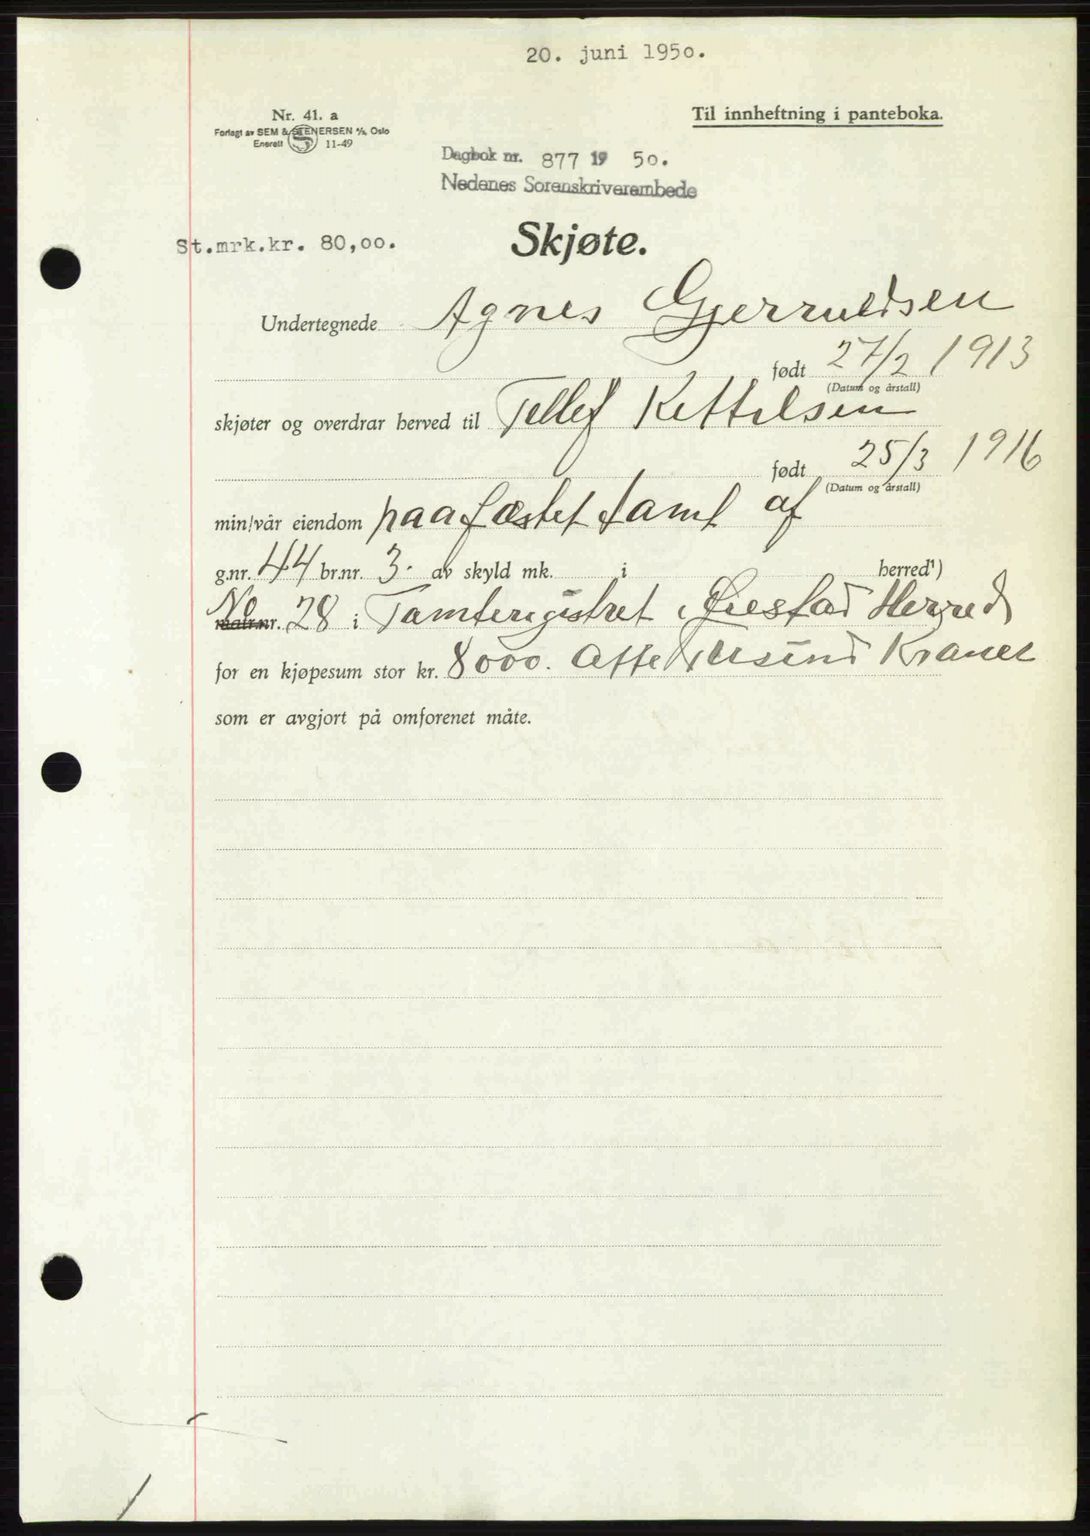 20. juni 1950.
Nr. 41. a
Til innheftning i panteboka.
Forlagt av SEM & STENERSEN A/S, Oslo
Enerett 11-49
Dagbok nr. 877 19 50.
Nedenes Sorenskriverembede
St.mrk.kr. 80,00.
Skjøte.
Undertegnede Agnes Gjerruldsen
født 27/2 1913
(Datum og årstall)
skjøter og overdrar herved til Tellef Kettilsen
født 25/3 1916
(Datum og årstall)
min/vår eiendom paa fæstet tomt af
g.nr. 44 br.nr. 3. av skyld mk. i herred¹)
No
matr.nr. 28 i Tomteregistret i Øiestad Herred
for en kjøpesum stor kr. 8000. Otte Tusind Kroner
som er avgjort på omforenet måte.